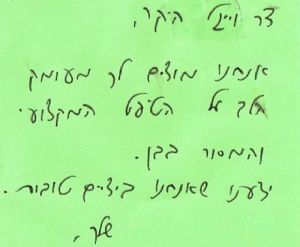 דר וינגל היקר,
אנחנו מודים לך מעומק
הלב על הטיפול המקצועי
והמסור בבן.
ידענו שאנחנו בידיים טובות.
שלך,